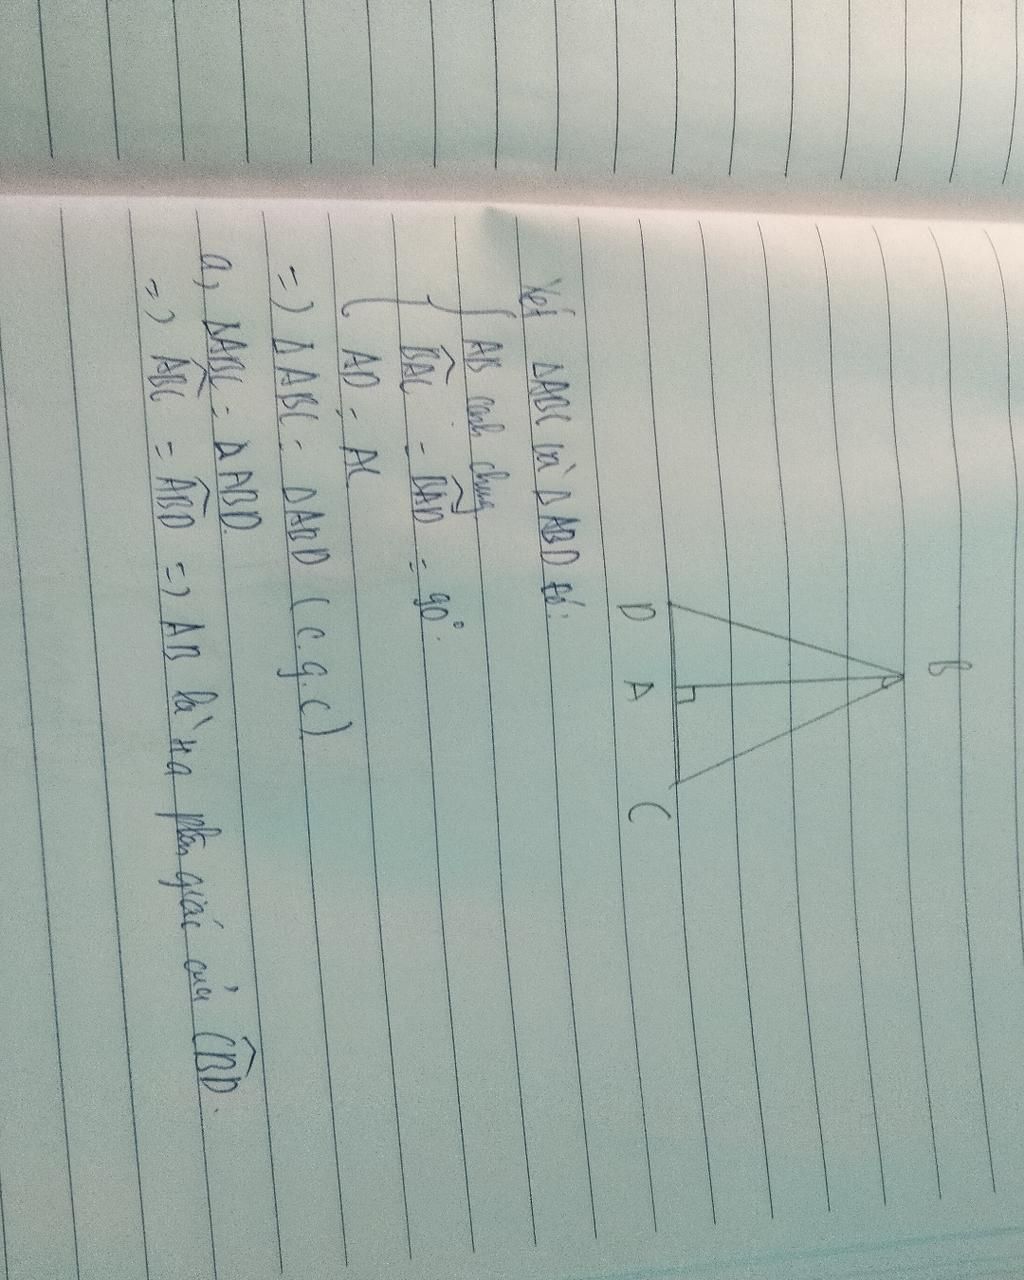 B
D A C
Xét ΔABC và ΔABD có:
AB cạnh chung
BAC = BAD = 90°.
AD = AC
=) ΔABC = ΔABD (c.g.c)
a, ΔABC = ΔABD.
=) ABC = ABD =) AB là tia phân giác của CBD.